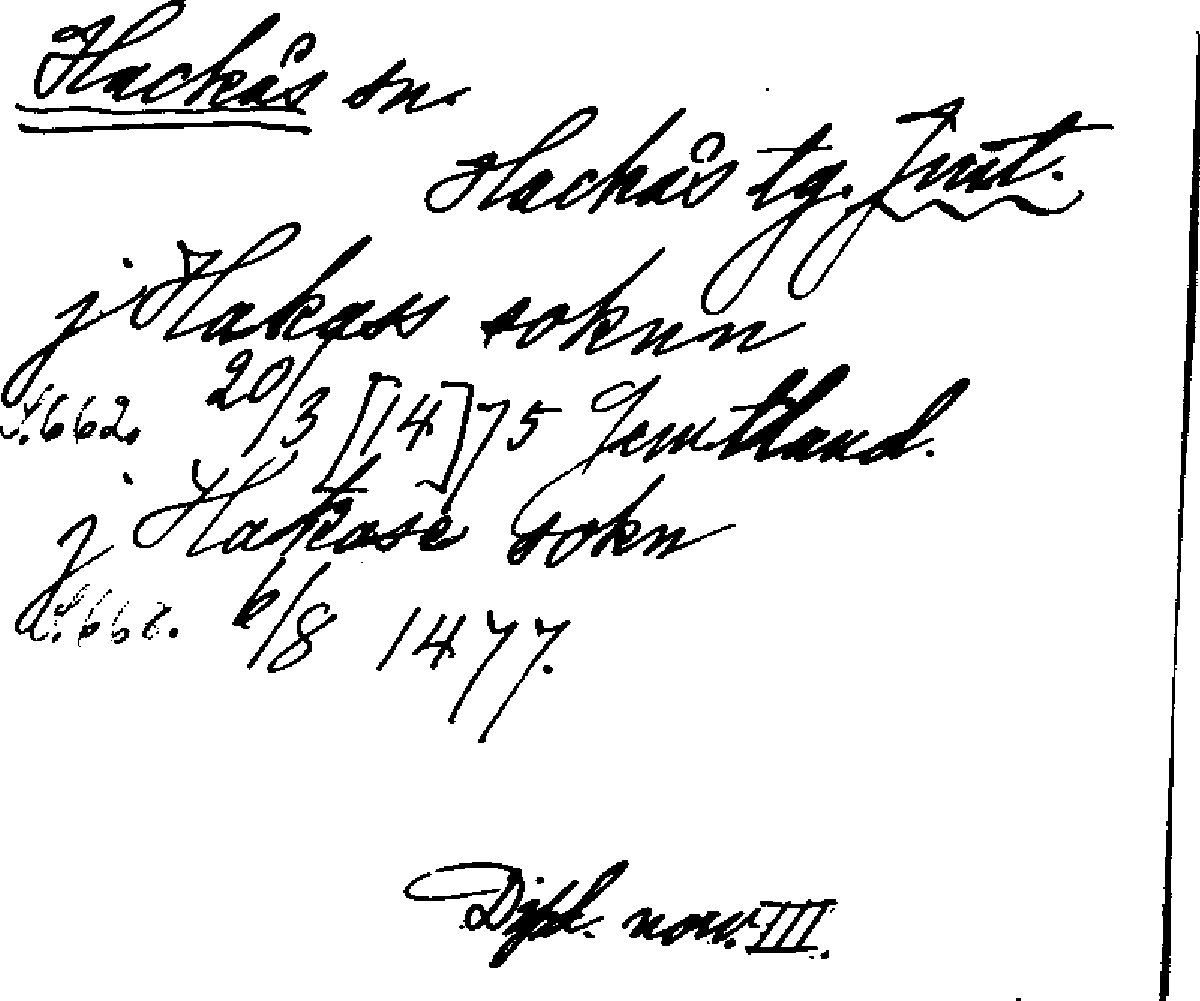 Hackås sn.
Hackås tg. Jmt.
j Hakass soknn
S. 662. 20/3 [14]75 Jemtland.
j Hakase sokn
S. 662. 6/8 1477.
Dipl. norv. III.